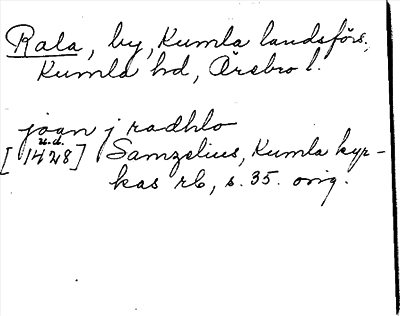 Rala, by, Kumla landsförs.,
Kumla hd, Örebro l.
joan j radhlo
u.d.
[1428] Samzelius, Kumla kyr-
kas rb, s. 35. orig.